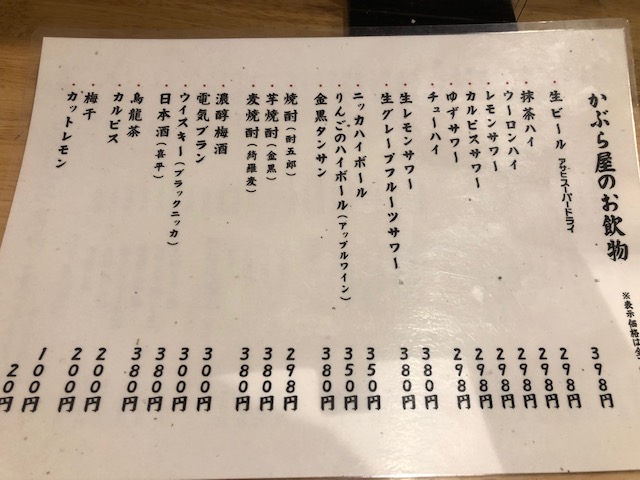 ※表示価格は
かぶら屋のお飲物
・生ビール アサヒスーパードライ 398円
・抹茶ハイ 298円
・ウーロンハイ 298円
・レモンサワー 298円
・カルピスサワー 298円
・ゆずサワー 298円
・チューハイ 298円
・生レモンサワー 380円
・生グレープフルーツサワー 380円
・ニッカハイボール 350円
・りんごのハイボール(アップルワイン) 350円
・金黒タンサン 380円
・焼酎(酎五郎) 298円
・芋焼酎(金黒) 380円
・麦焼酎(綺羅麦) 380円
・濃醇梅酒 300円
・電気ブラン 300円
・ウイスキー(ブラックニッカ) 380円
・日本酒(喜平) 380円
・烏龍茶 200円
・カルピス 200円
・梅干 100円
・カットレモン 20円